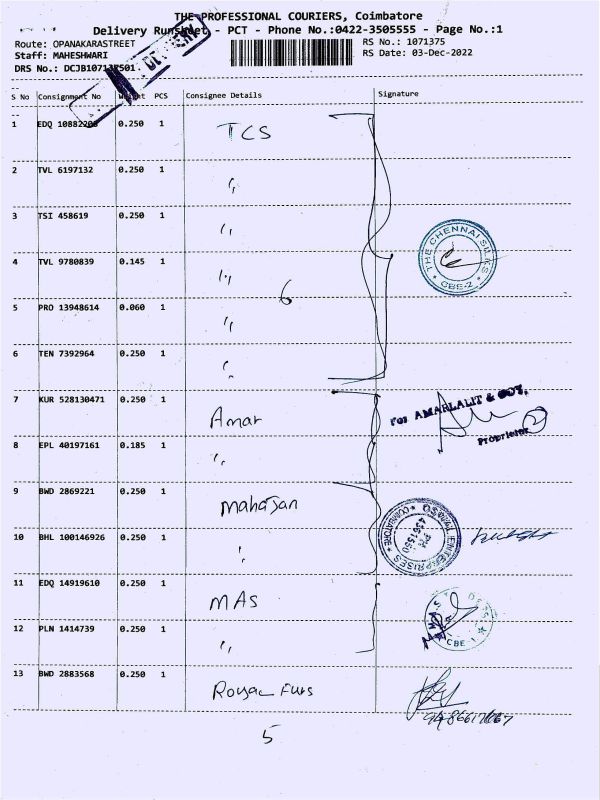 THE PROFESSIONAL COURIERS, Coimbatore
Delivery Runsheet - PCT - Phone No.:0422-3505555 - Page No.:1
Route: OPANAKARASTREET RS No.: 1071375
Staff: MAHESHWARI RS Date: 03-Dec-2022
DRS No.: DCJB107137501
DELIVERY
S No Consignment No Weight PCS Consignee Details Signature
1 EDQ 10882208 0.250 1 TCS
2 TVL 6197132 0.250 1 "
3 TSI 458619 0.250 1 "
THE CHENNAI SILKS
CBE-2
4 TVL 9780839 0.145 1 "
6
5 PRO 13948614 0.060 1 "
6 TEN 7392964 0.250 1 "
7 KUR 528130471 0.250 1 Amar
For AMARLALIT & COY.
Proprietor
8 EPL 40197161 0.185 1 "
9 BWD 2869221 0.250 1 Mahajan
ENTERPRISES
COIMBATORE
PH
4361550
10 BHL 100146926 0.250 1 "
11 EDQ 14919610 0.250 1 MAS
CBE-1
12 PLN 1414739 0.250 1 "
13 BWD 2883568 0.250 1 Royal Furs
5